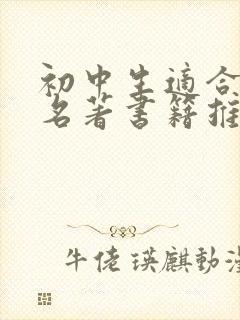 初中生適合
名著書籍推
牛佬瑛麒動漫